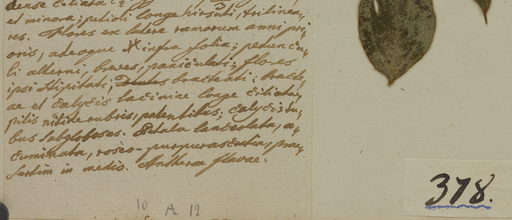 dense ciliata
et minora; petioli longe hirsuti, trilinea,
res. Flores ex latere ramorum anni pri,
oris, adeoque infra folia; peduncu,
li alterni, breves, paniculati; flores
ipsi stipitati, bracteati: bracte,
ae et calycis laciniae longe ciliatae,
pilis nitide rubris, patentibus; calycis tu,
bus subglobosus. Petala lanceolata, a,
cuminata, roseo-purpurascentia, prae,
sertim in medio. Antherae flavae.
10 A 12
378.